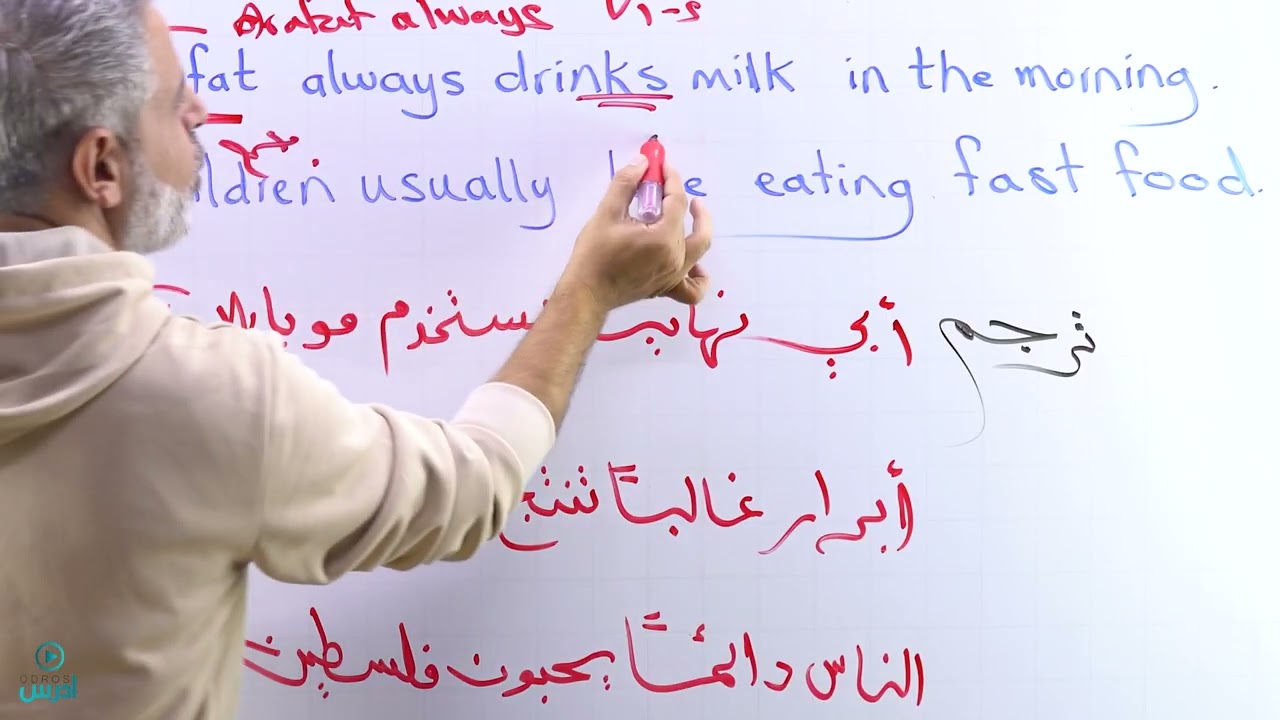 always V1-s
fat always drinks milk in the morning.
ildren usually eating fast food.
جمع
ترجم
أبي نهائيًا يستخدم موبايل
أبرار غالبًا
الناس دائمًا يحبون فلسطين
ODROS
أدرس